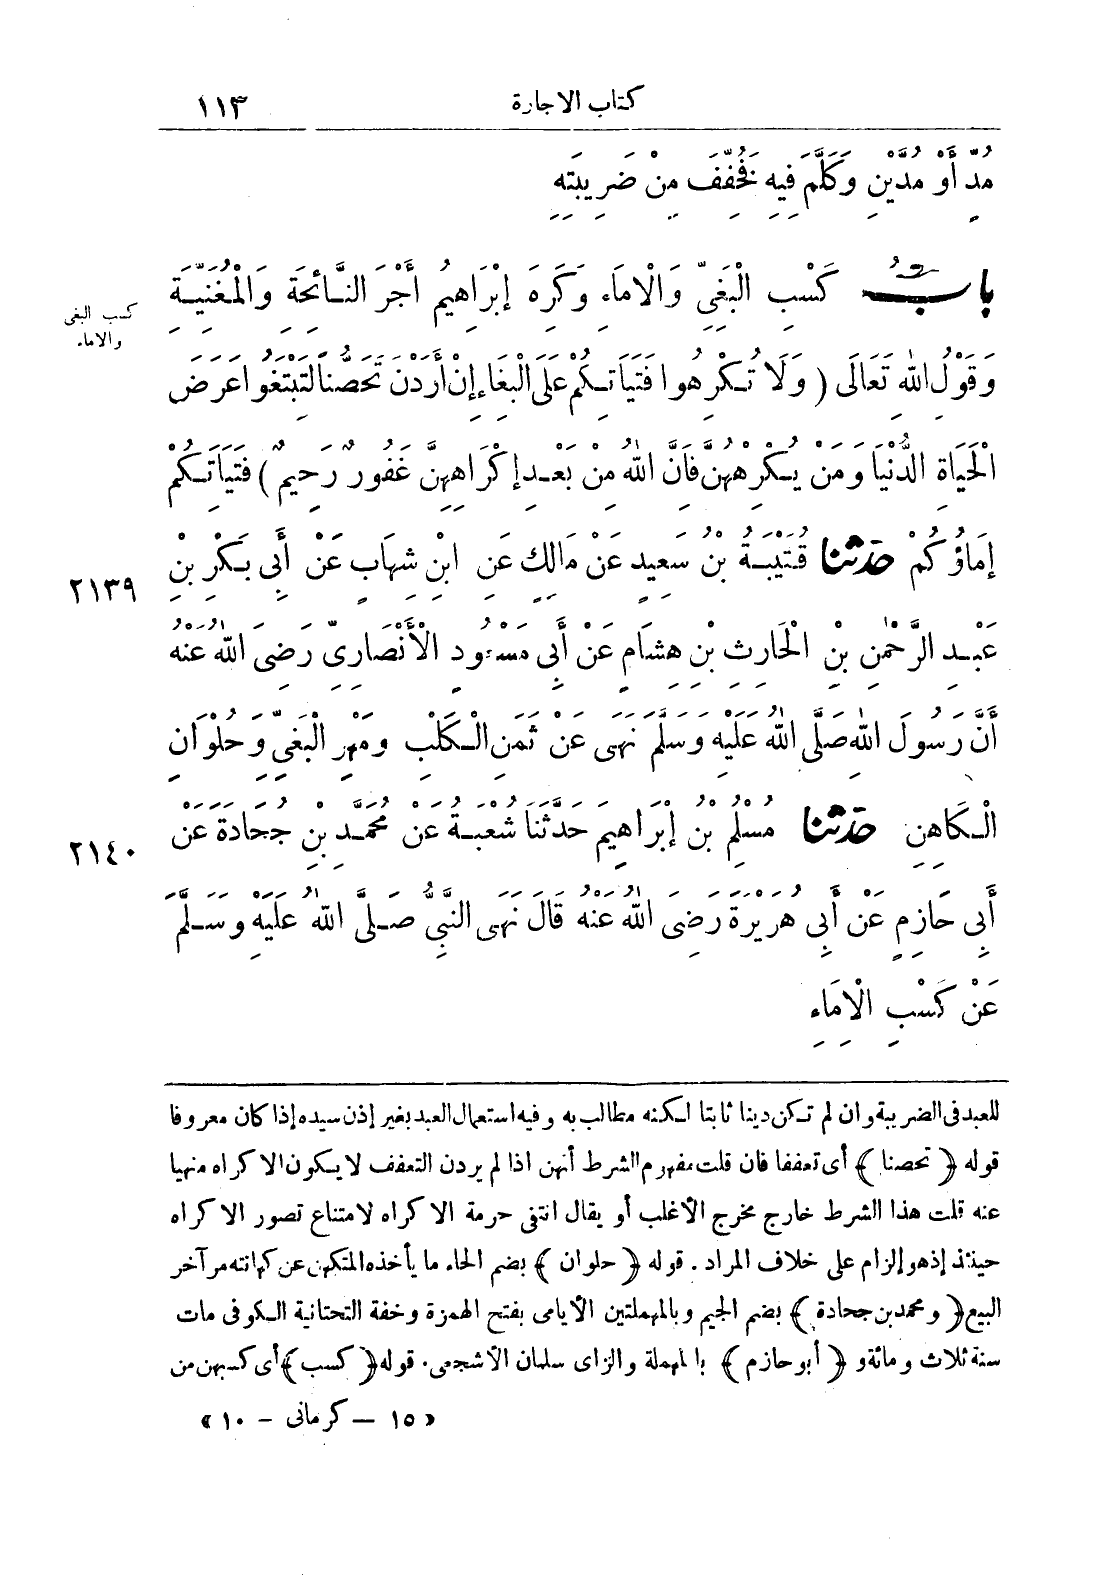 كتاب الاجارة ١١٣
مُدٍّ أَوْ مُدَّيْنِ وَكَلَّمَ فِيهِ فَخُفِّفَ مِنْ ضَرِيبَتِهِ
بَابُ كَسْبِ الْبَغِيِّ وَالْاِمَاءِ وَكَرِهَ إِبْرَاهِيمُ أَجْرَ النَّائِحَةِ وَالْمُغَنِّيَةِ
كسب البغى
والاماء
وَقَوْلِ اللهِ تَعَالَى (وَلَا تُكْرِهُوا فَتَيَاتِكُمْ عَلَى الْبِغَاءِ إِنْ أَرَدْنَ تَحَصُّنًا لِتَبْتَغُوا عَرَضَ
الْحَيَاةِ الدُّنْيَا وَمَنْ يُكْرِهْهُنَّ فَانَّ اللهَ مِنْ بَعْدِ إِكْرَاهِهِنَّ غَفُورٌ رَحِيمٌ) فَتَيَاتِكُمْ
إِمَاؤُكُمْ حَدَّثَنَا قُتَيْبَةُ بْنُ سَعِيدٍ عَنْ مَالِكٍ عَنِ ابْنِ شِهَابٍ عَنْ أَبِى بَكْرِ بْنِ
٢١٣٩
عَبْدِ الرَّحْمٰنِ بْنِ الْحَارِثِ بْنِ هِشَامٍ عَنْ أَبِى مَسْعُودٍ الْأَنْصَارِيِّ رَضِىَ اللهُ عَنْهُ
أَنَّ رَسُولَ اللهِ صَلَّى اللهُ عَلَيْهِ وَسَلَّمَ نَهَى عَنْ ثَمَنِ الْكَلْبِ وَمَهْرِ الْبَغِيِّ وَحُلْوَانِ
الْكَاهِنِ حَدَّثَنَا مُسْلِمُ بْنُ إِبْرَاهِيمَ حَدَّثَنَا شُعْبَةُ عَنْ مُحَمَّدِ بْنِ جُحَادَةَ عَنْ
٢١٤٠
أَبِى حَازِمٍ عَنْ أَبِى هُرَيْرَةَ رَضِىَ اللهُ عَنْهُ قَالَ نَهَى النَّبِىُّ صَلَّى اللهُ عَلَيْهِ وَسَلَّمَ
عَنْ كَسْبِ الْاِمَاءِ
للعبد فى الضريبة وان لم تكن دينا ثابتا لكنه مطالب به وفيه استعمال العبد بغير إذن سيده إذا كان معروفا
قوله ﴿تحصنا﴾ أى تعففا فان قلت مفهوم الشرط أنهن اذا لم يردن التعفف لا يكون الاكراه منهيا
عنه قلت هذا الشرط خارج مخرج الأغلب أو يقال انتفى حرمة الاكراه لامتناع تصور الاكراه
حينئذ إذ هو إلزام على خلاف المراد . قوله ﴿حلوان﴾ بضم الحاء ما يأخذه المتكهن عن كهانته مر آخر
البيع ﴿ومحمد بن جحادة﴾ بضم الجيم وبالمهملتين الأيامى بفتح الهمزة وخفة التحتانية الكوفى مات
سنة ثلاث ومائة و ﴿أبو حازم﴾ بالمهملة والزاى سلمان الأشجعى. قوله ﴿كسب﴾ أى كسبهن من
«١٥ — كرمانى – ١٠»